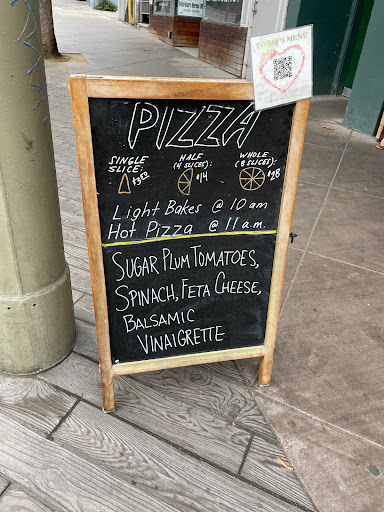 TODAY'S MENU
PIZZA
SINGLE SLICE: $3.50
HALF (4 SLICES): $14
WHOLE (8 SLICES): $28
Light Bakes @ 10 am
Hot Pizza @ 11 a.m.
SUGAR PLUM TOMATOES,
SPINACH, FETA CHEESE,
BALSAMIC
VINAIGRETTE